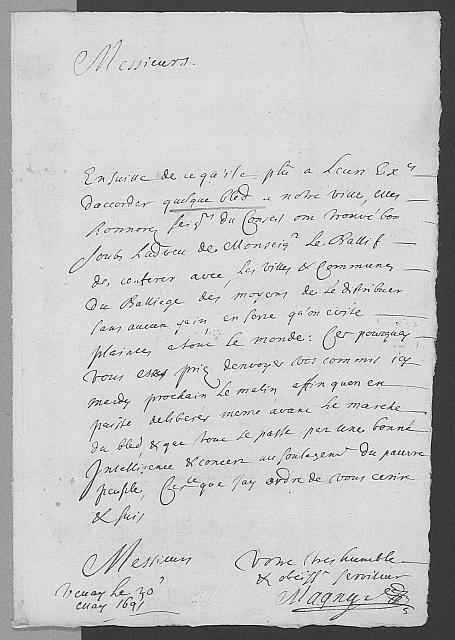 Messieurs.
Ensuitte de ce qu'ila plü a Leurs Exces
daccorder quelque bled a notre ville, mes
honnorez seigrs du Conseil ont trouvé bon
soubs Ladveu de Monseigr Le Ballif
de conferer avec Les villes & Communes
Du Balliage des moyens de Le distribuer
sans aucun gain, en sorte qu'on evite
plaintes a tout le monde: Cest pourquoy
vous estes priez denvoyer vos commis icy
mardy prochain le matin affin quon en
puisse deliberer mesme avant le marché
du bled & que tout se passe par une bonne
Intelligence & concert au soulagemt du pauvre
peuple, Cest ce que jay ordre de vous escrire
& suis
Messieurs
Votre tres humble
& obeisst serviteur
Vevay Le 30e
may 1691
Magny